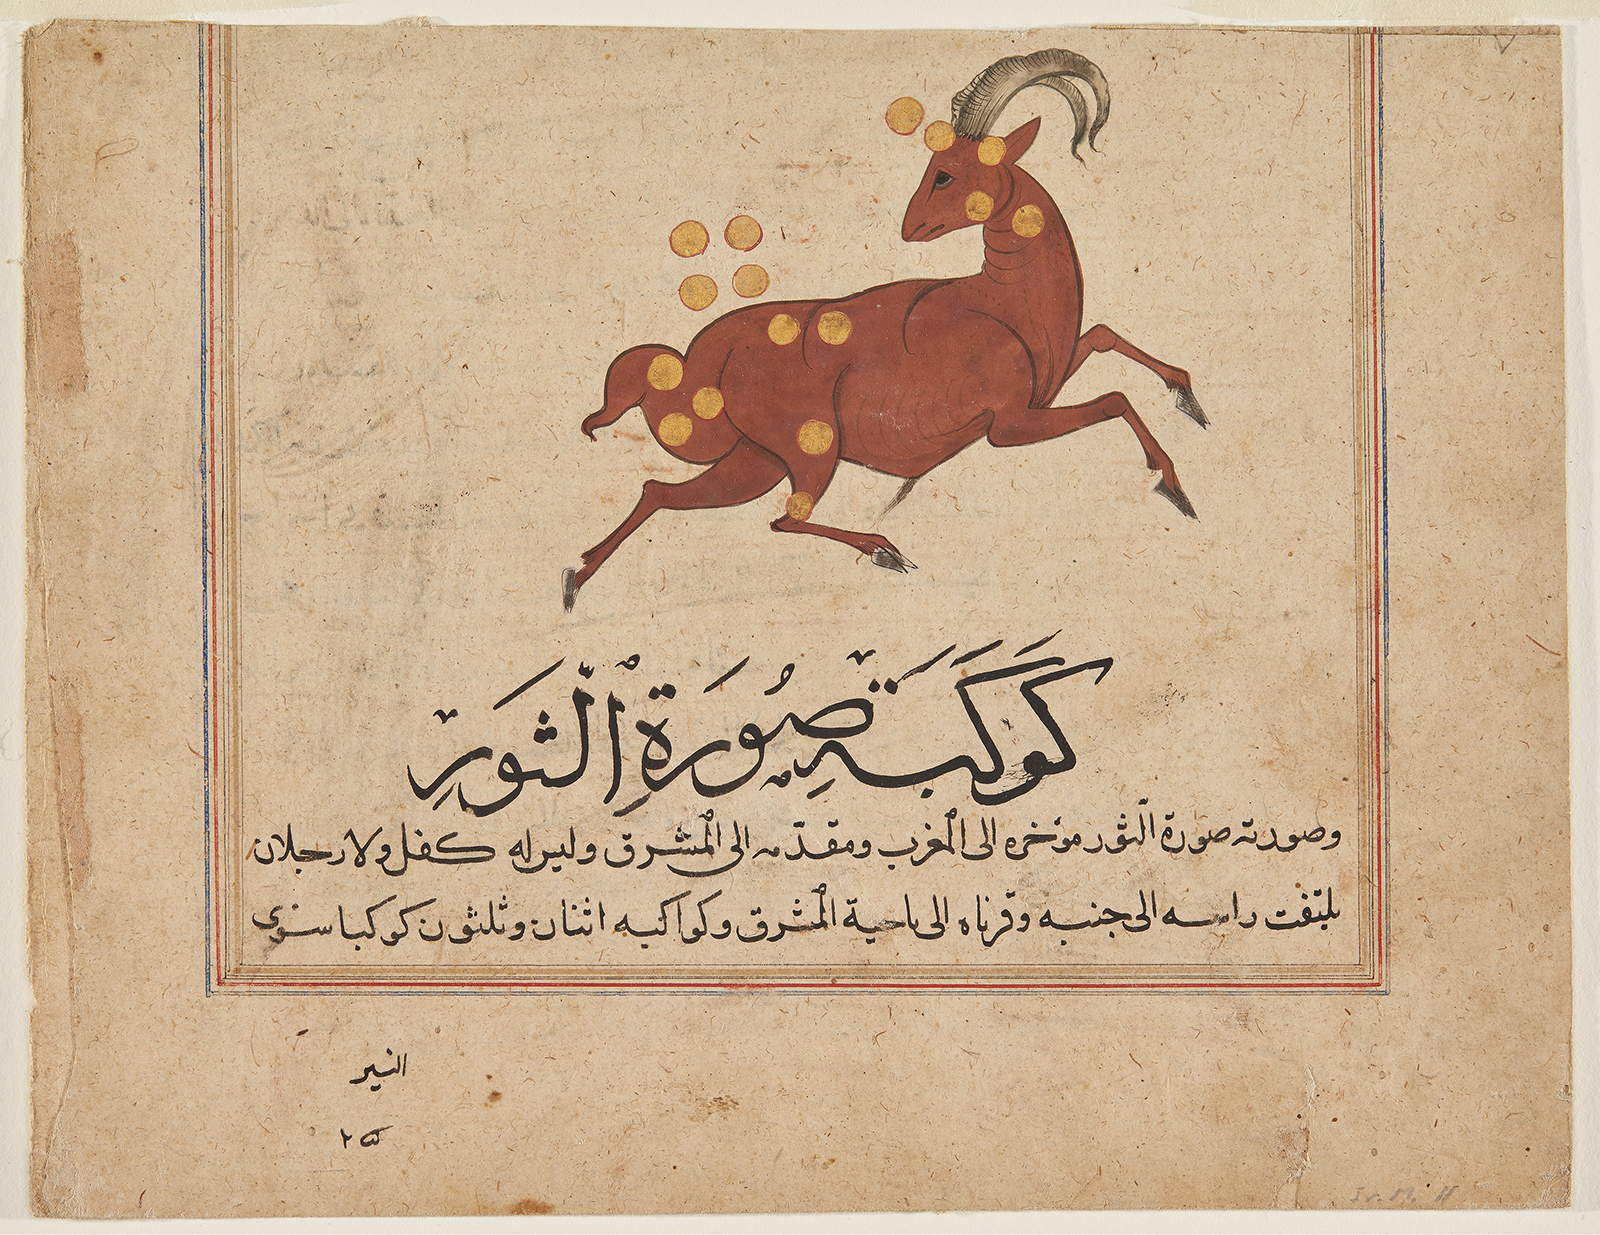 كَوكَبَةِ صُورَةِ الْثَورِ
وصورته صورة الثور مؤخره الى المغرب ومقدّمه الى المشرق وليس له كفل ولا رجلان
يلتفت راسه الى جنبه وقرناه الى ناحية المشرق وكواكبه اثنان وثلثون كوكبا سوى
النير